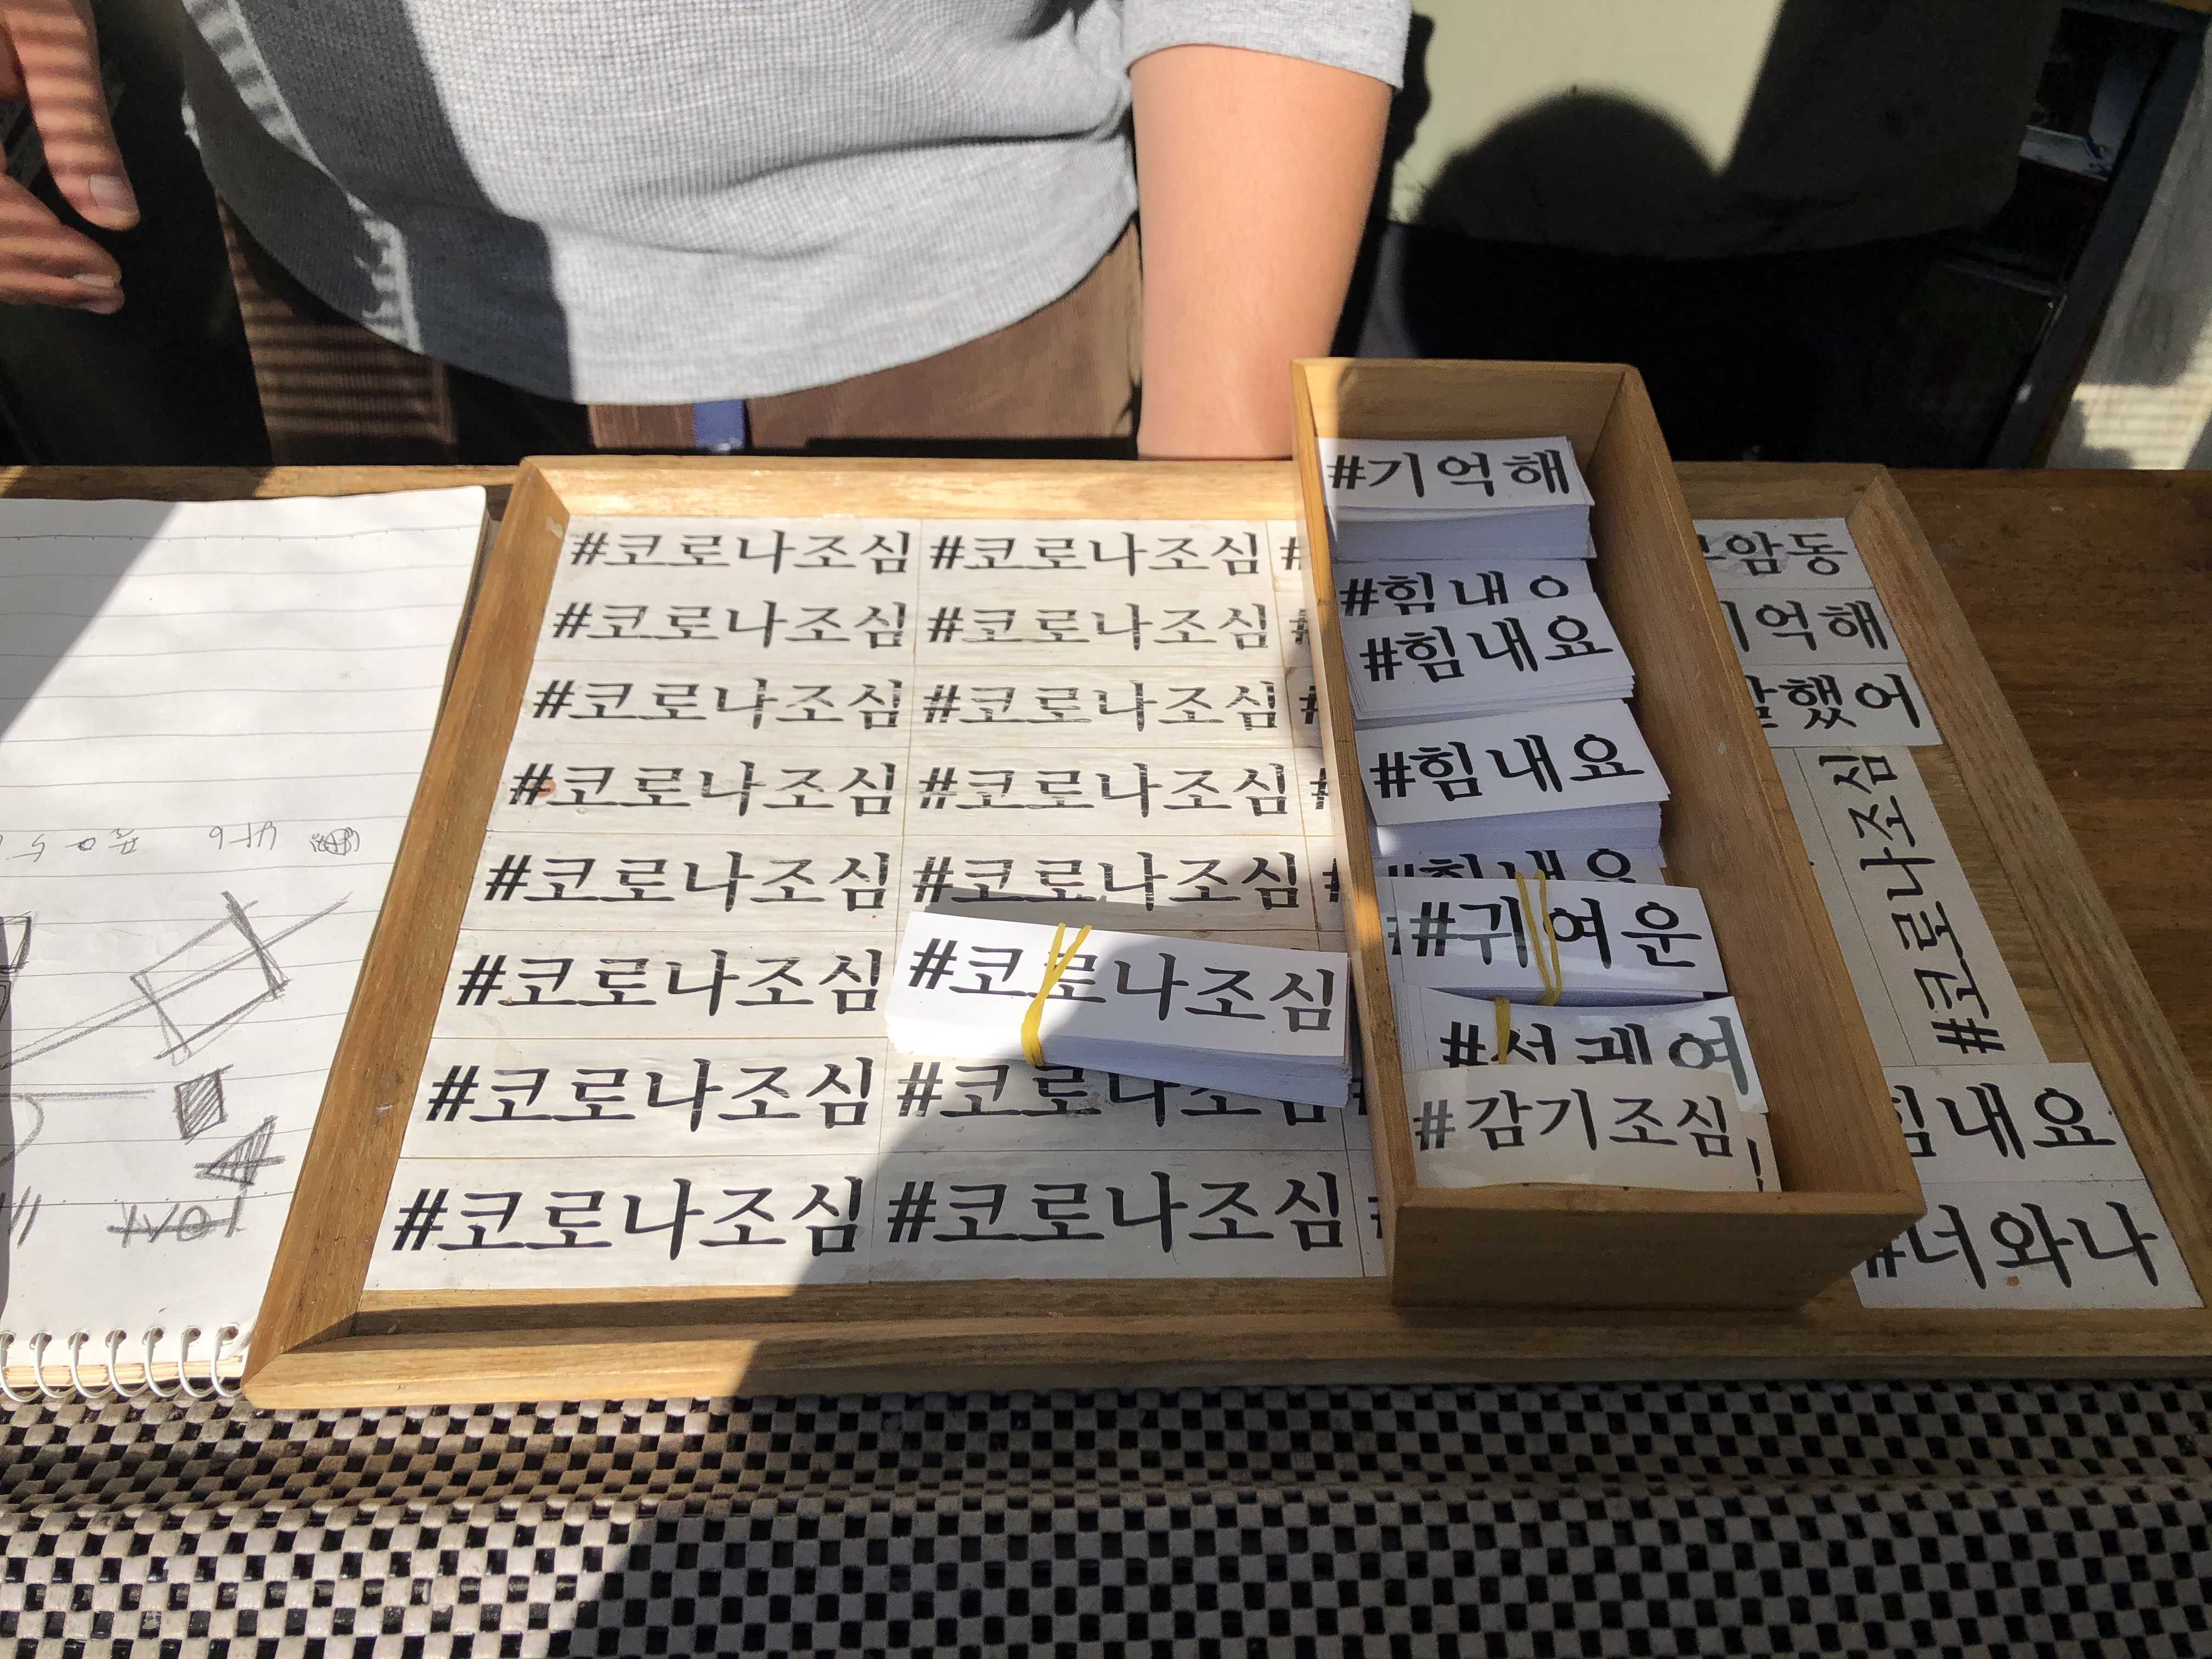 #코로나조심 #코로나조심 #
#코로나조심 #코로나조심 #
#코로나조심 #코로나조심 #
#코로나조심 #코로나조심 #
#코로나조심 #코로나조심 #
#코로나조심
#코로나조심 #코로나조심
#코로나조심 #코로나조심 #
#코로나조심
#기억해
#힘내요
#힘내요
#힘내요
#힘내요
#귀여운
#감기조심
암동
기억해
했어
#코로나조심
힘내요
#너와나